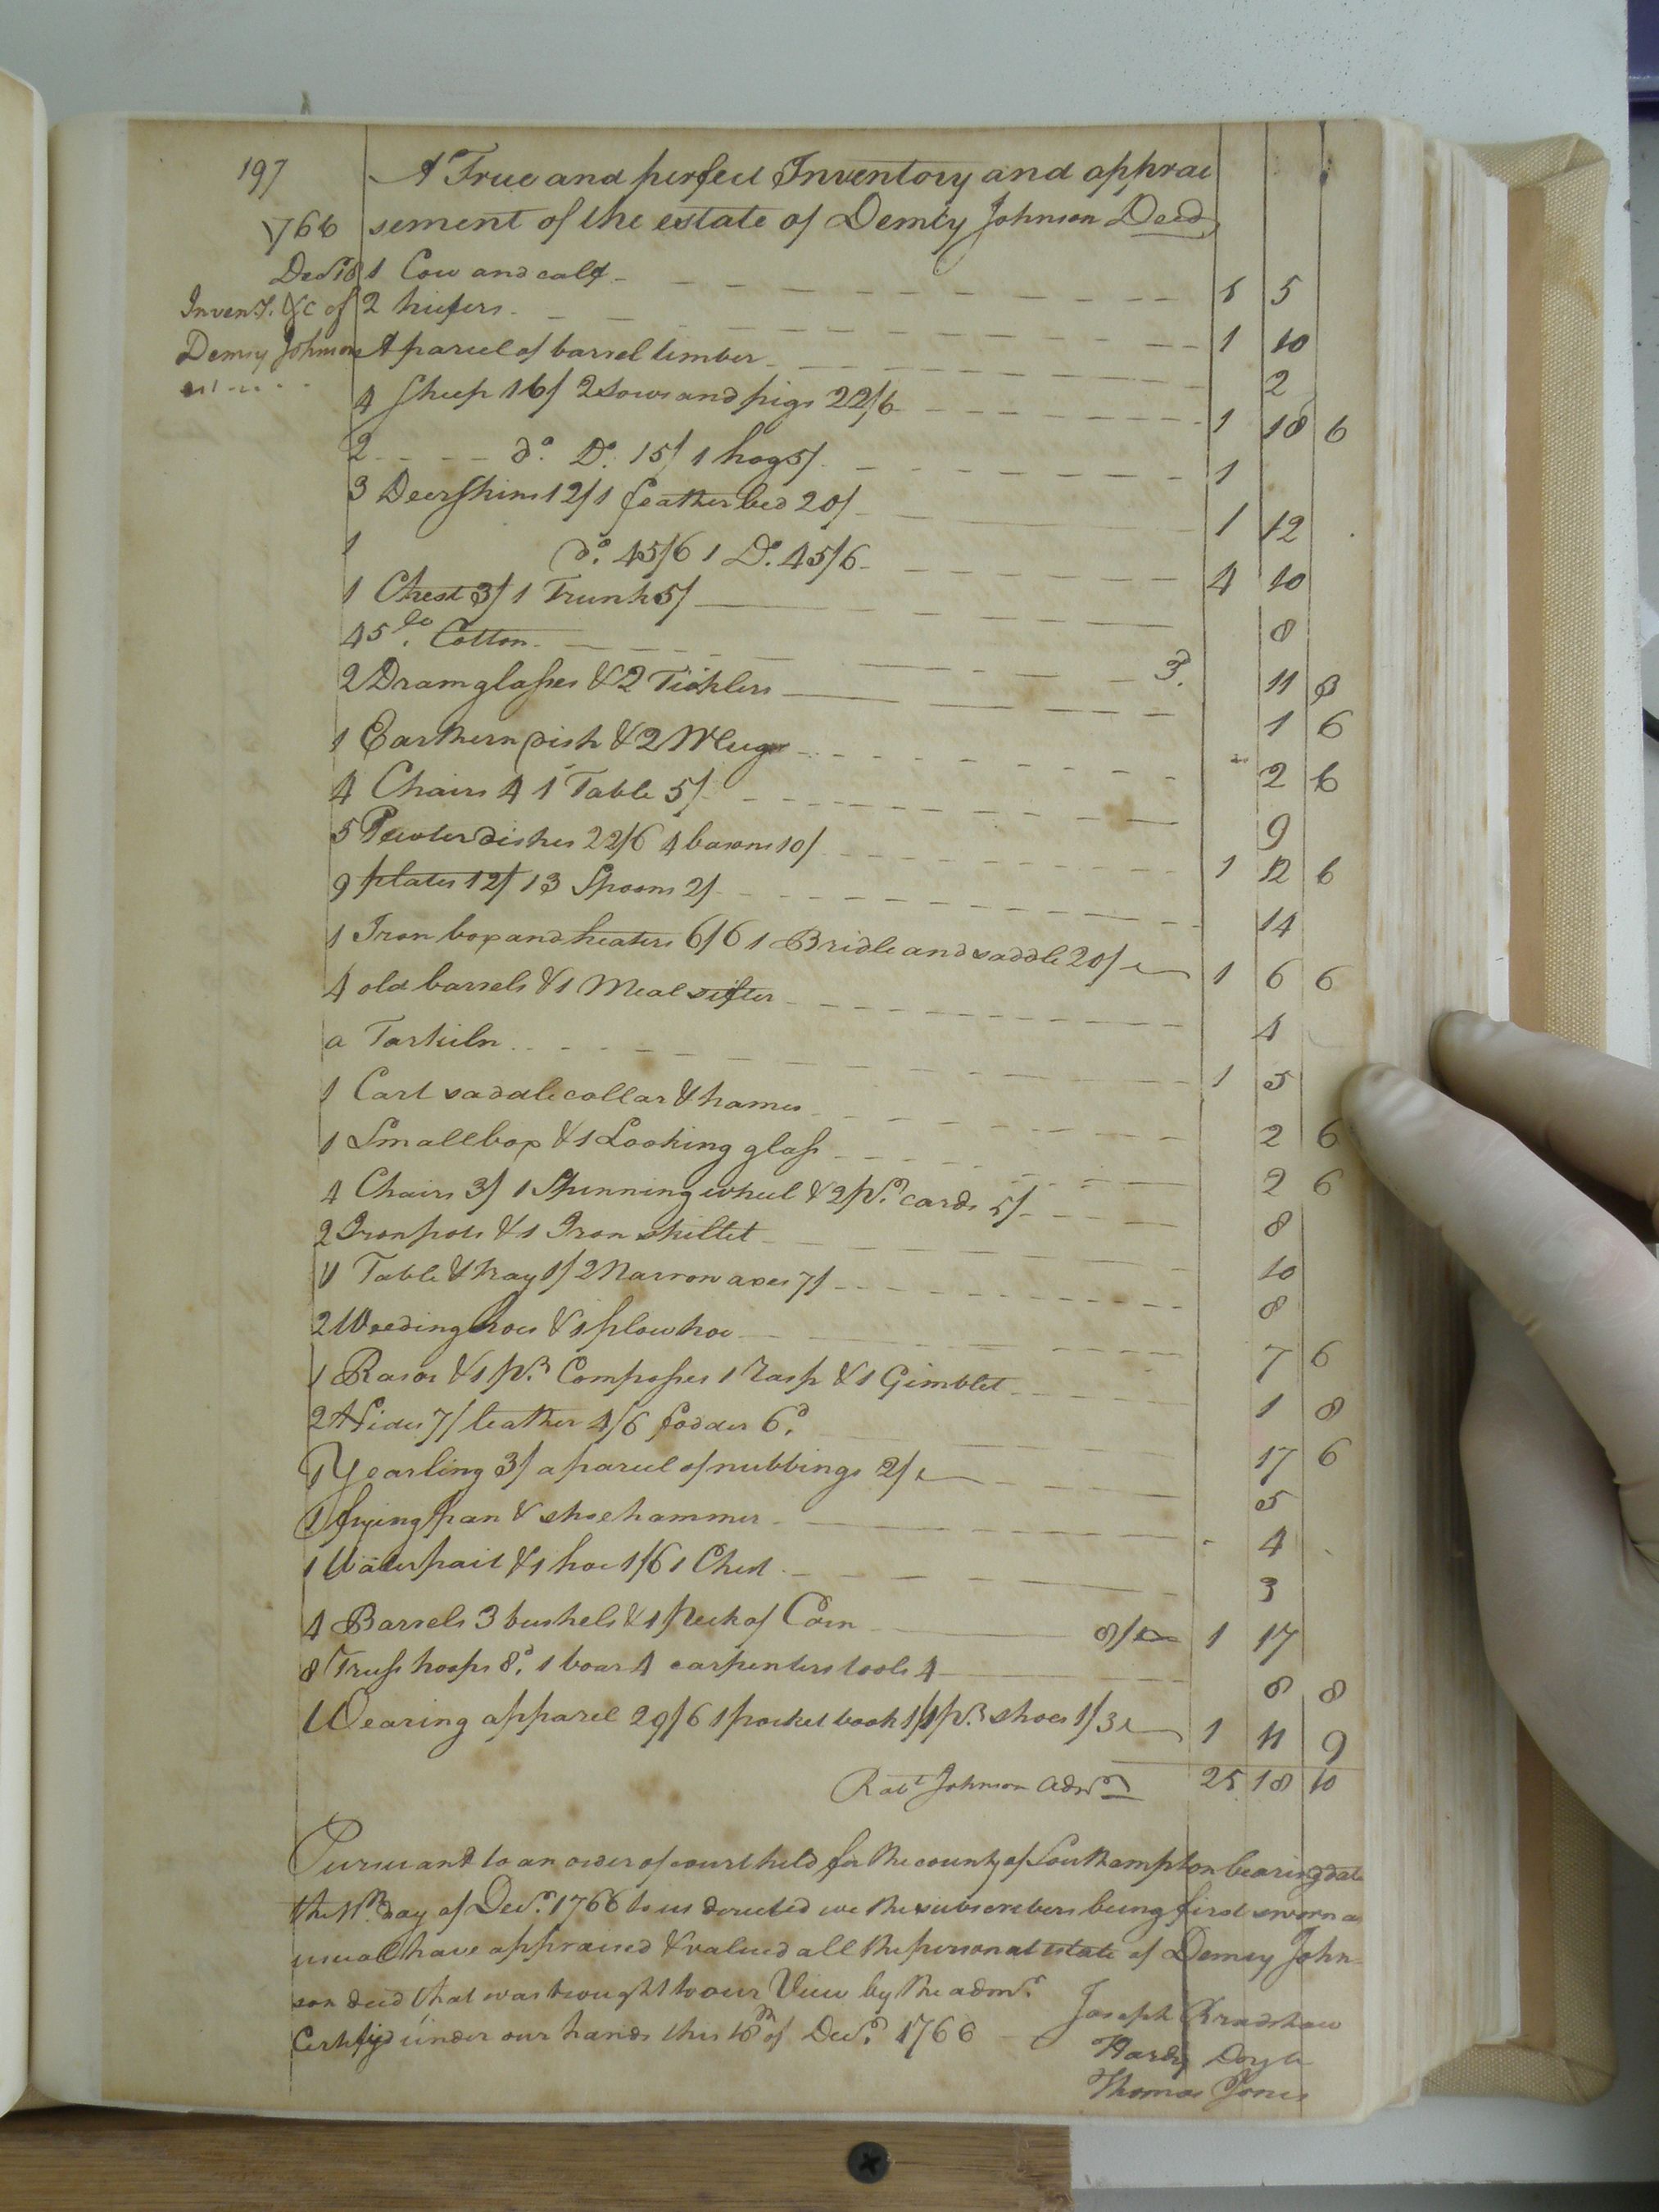 197
A True and perfect Inventory and apprai
1766 sement of the estate of Demcy Johnson Decd,
Decr 18 1 Cow and calf 1 5
Invent. &c of 2 hiefers 1 10
Demcy Johnson A parcel of barrel timber 2
4 Sheep 16/ 2 sows and pigs 22/6 1 18 6
2 do. Do. 15/ 1 hog 5/ 1
3 Deer Skins 12/ 1 feather bed 20/ 1 12
1 do. 45/6 1 Do. 45/6 4 10
1 Chest 3/ 1 Trunk 5/ 8
45 lb. Cotton 3d. 11 3
2 Dram glasses & 2 Ticklers 1 6
1 Earthern dish & 2 Mugs 2 6
4 Chairs 4 1 Table 5/ 9
5 Pewter dishes 22/6 4 basons 10/ 1 12 6
9 plates 12/ 13 Spoons 2/ 14
1 Iron box and heaters 6/6 1 Bridle and saddle 20/ 1 6 6
4 old barrels & 1 Meal sifter 4
a Tarkiln 1 5
1 Cart saddle collar & hames 2 6
1 Small box & 1 Looking glass 2 6
4 Chairs 3/ 1 Spinning wheel & 2 pr. cards 5/ 8
2 Iron pots & 1 Iron skillet 10
1 Table & tray 1/ 2 Narrow axes 7/ 8
2 Weeding hoes & 1 plow hoe 7 6
1 Rasor & 1 pr. Compasses 1 Rasp & 1 Gimblet 1 8
2 Hides 7/ leather 4/6 fodder 6d. 17 6
1 Yearling 3/ a parcel of nubbings 2/ 5
1 frying pan & shoe hammer 4
1 Water pail & 1 hoe 1/6 1 Chest 3
4 Barrels 3 bushels & 1 Peck of Corn 8/ 1 17
8 Truss hoops 8d. 1 boar 4 carpenters tools 4 8 8
Wearing apparel 29/6 1 pocket book 1/ 1 pr. shoes 1/3 1 11 9
Robt Johnson admr 25 18 10
Pursuant to an order of court held for the county of Southampton bearing date
the 11th day of Decr. 1766 to us directed we the subscribers being first sworn as
usual have appraised & valued all the personal estate of Demcy John
son decd that was brought to our View by the admr.
Certifyd under our hands this 18th of Decr. 1766 Joseph Bradshaw
Hardy Doyle
Thomas Jones